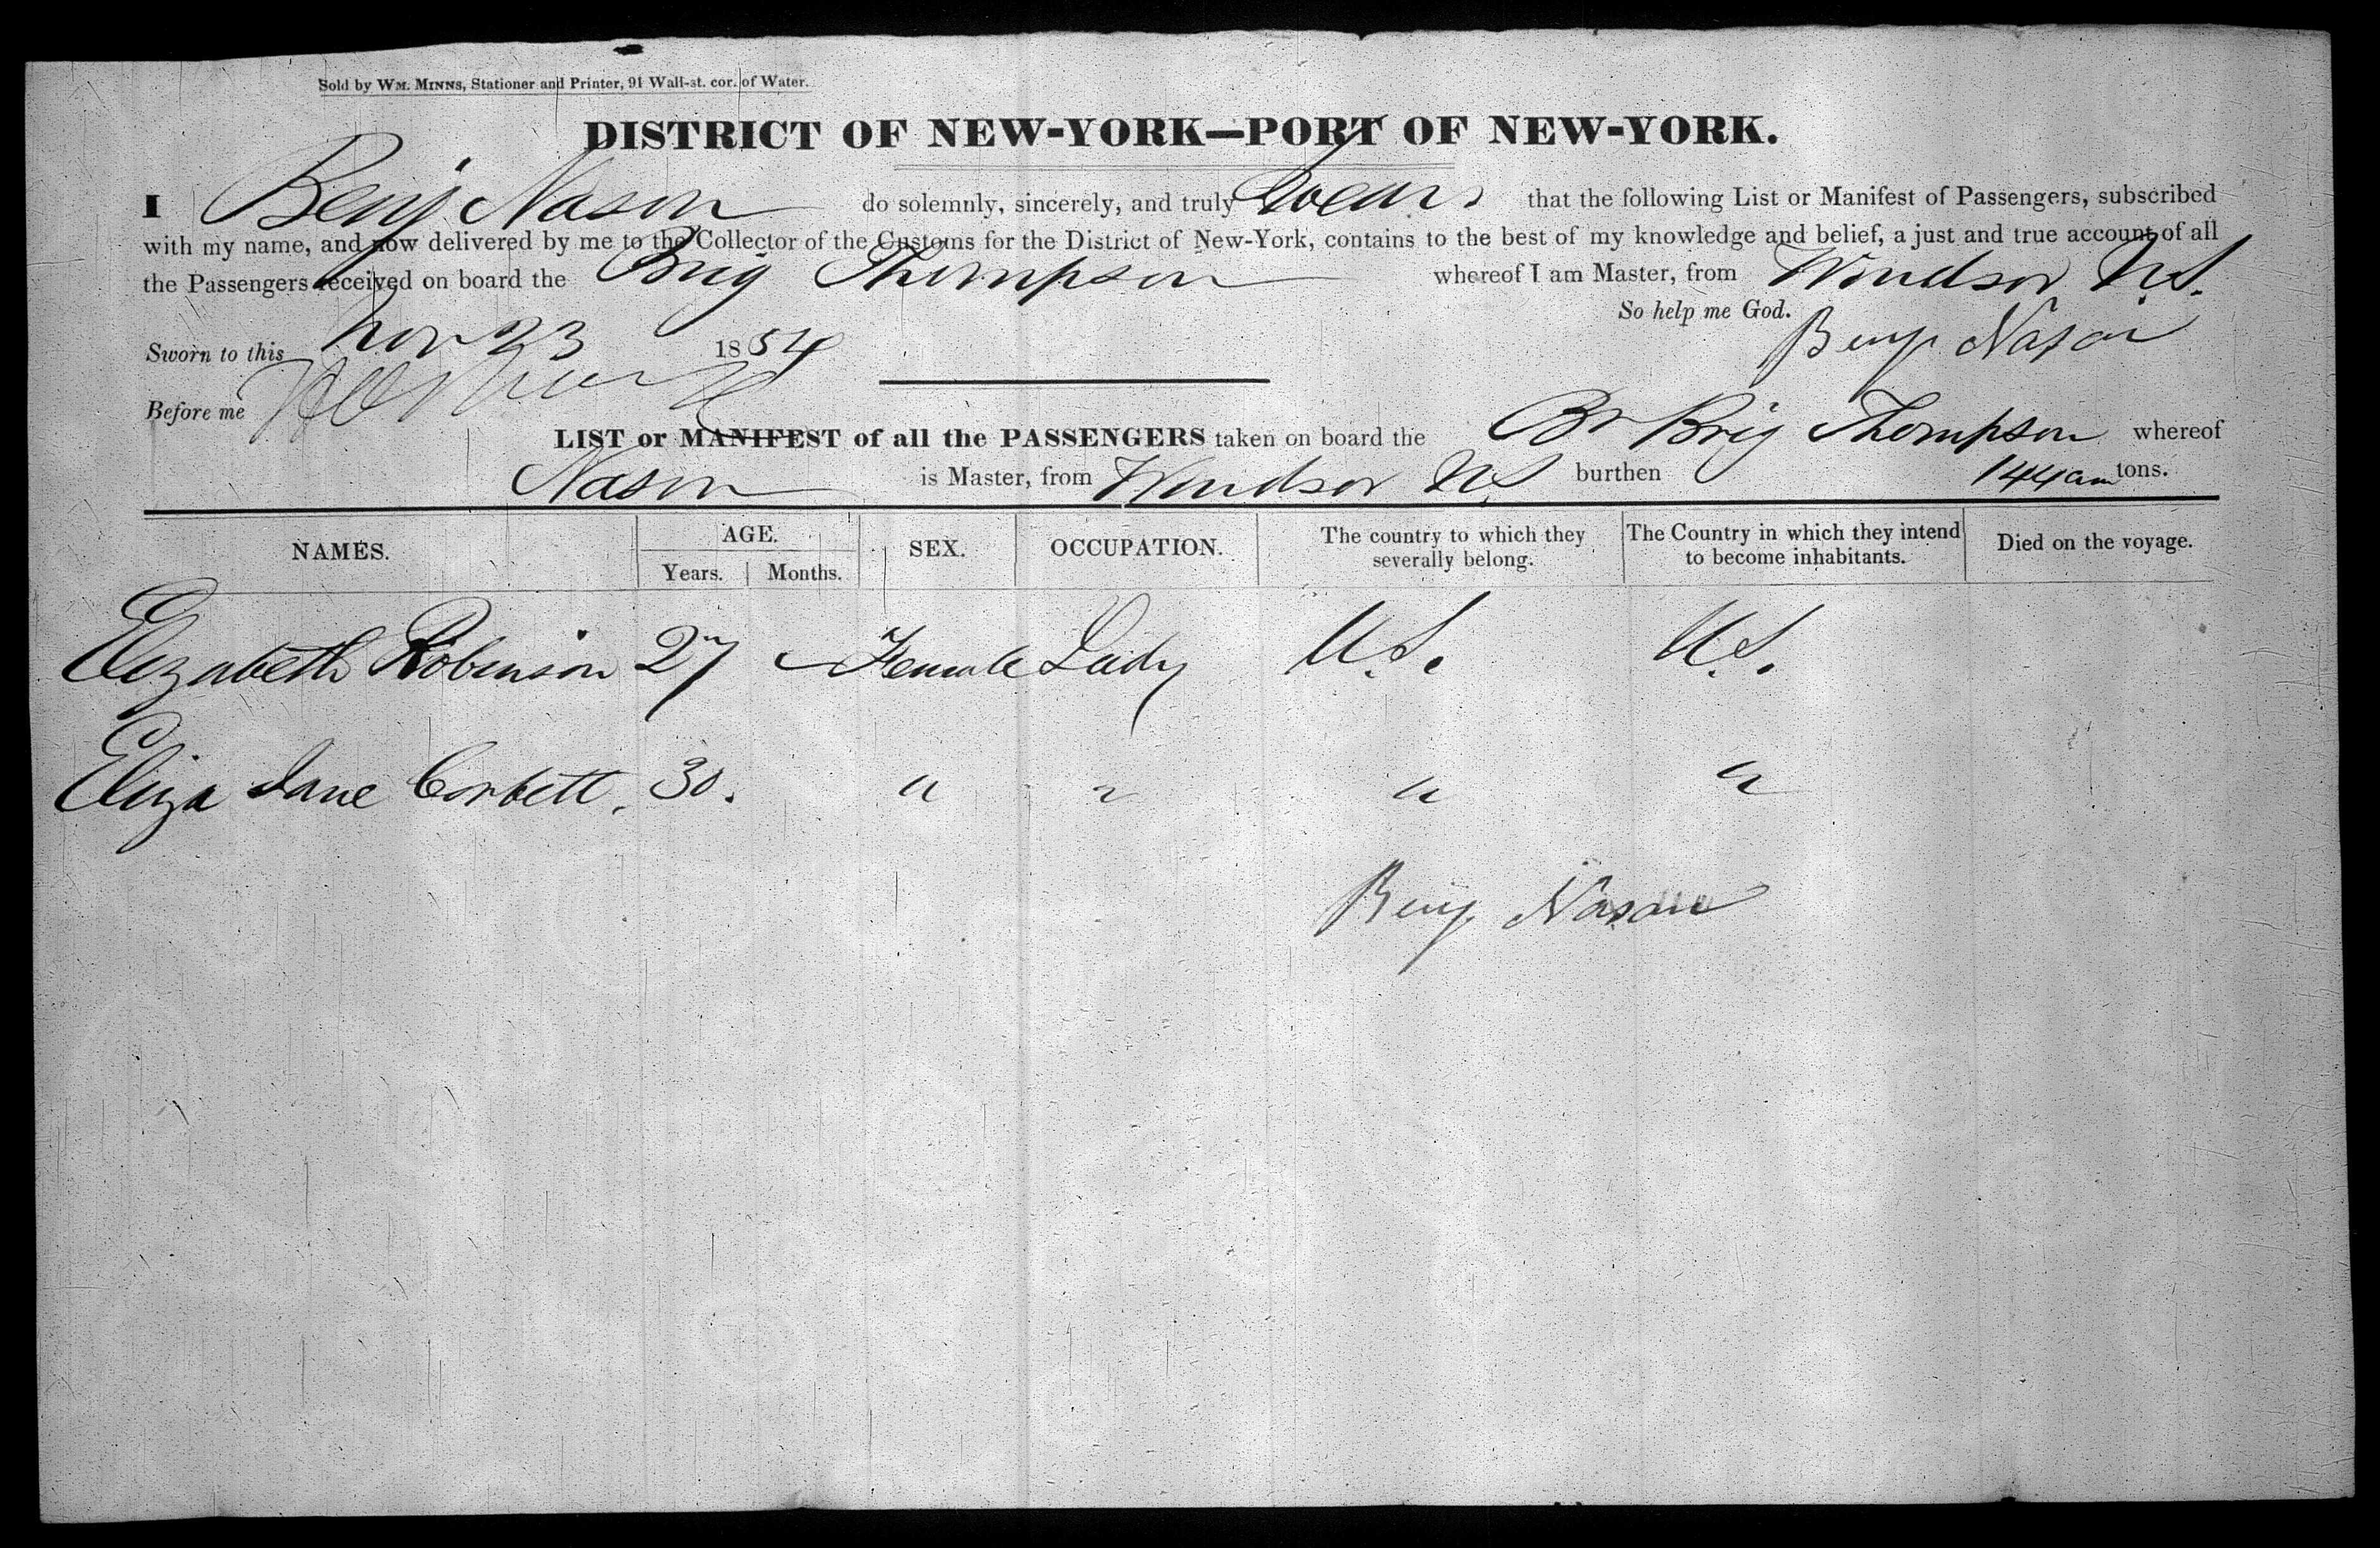 Sold by WM. MINNS, Stationer and Printer, 91 Wall-st. cor. of Water.
DISTRICT OF NEW-YORK—PORT OF NEW-YORK.
I Benj Nason do solemnly, sincerely, and truly Swear that the following List or Manifest of Passengers, subscribed
with my name, and now delivered by me to the Collector of the Customs for the District of New-York, contains to the best of my knowledge and belief, a just and true account of all
the Passengers received on board the Brig Thompson whereof I am Master, from Windsor N.S.
So help me God.
Sworn to this Nov 23 1854 Benj Nason
Before me
LIST or MANIFEST of all the PASSENGERS taken on board the Br Brig Thompson whereof
Nason is Master, from Windsor NS burthen 144 tons.
NAMES. AGE. SEX. OCCUPATION. The country to which they severally belong. The Country in which they intend to become inhabitants. Died on the voyage.
Years. Months.
Elizabeth Robinson 27 Female Lady U.S. U.S.
Eliza Jane Corbett. 30. " " " "
Benj Nason